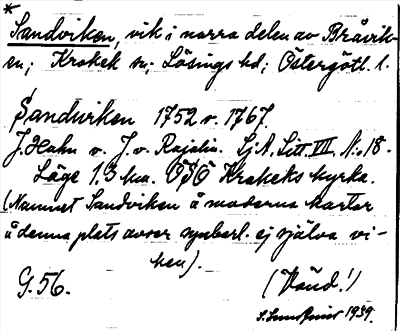 *
Sandviken, vik i norra delen av Bråvik-
en; Krokek sn; Lösings hd; Östergötl. l.
Sandviken 1752 v. 1767.
J. Hahn v. J. v. Rajalin. Sj. A. Litt. VII. N:o 18.
Läge 1.3 km. OSO Krokeks kyrka.
(Namnet Sandviken å moderna kartor
å denna plats avser synbarl. ej själva vi-
ken).
G. 56.
(Vänd!)
1939.